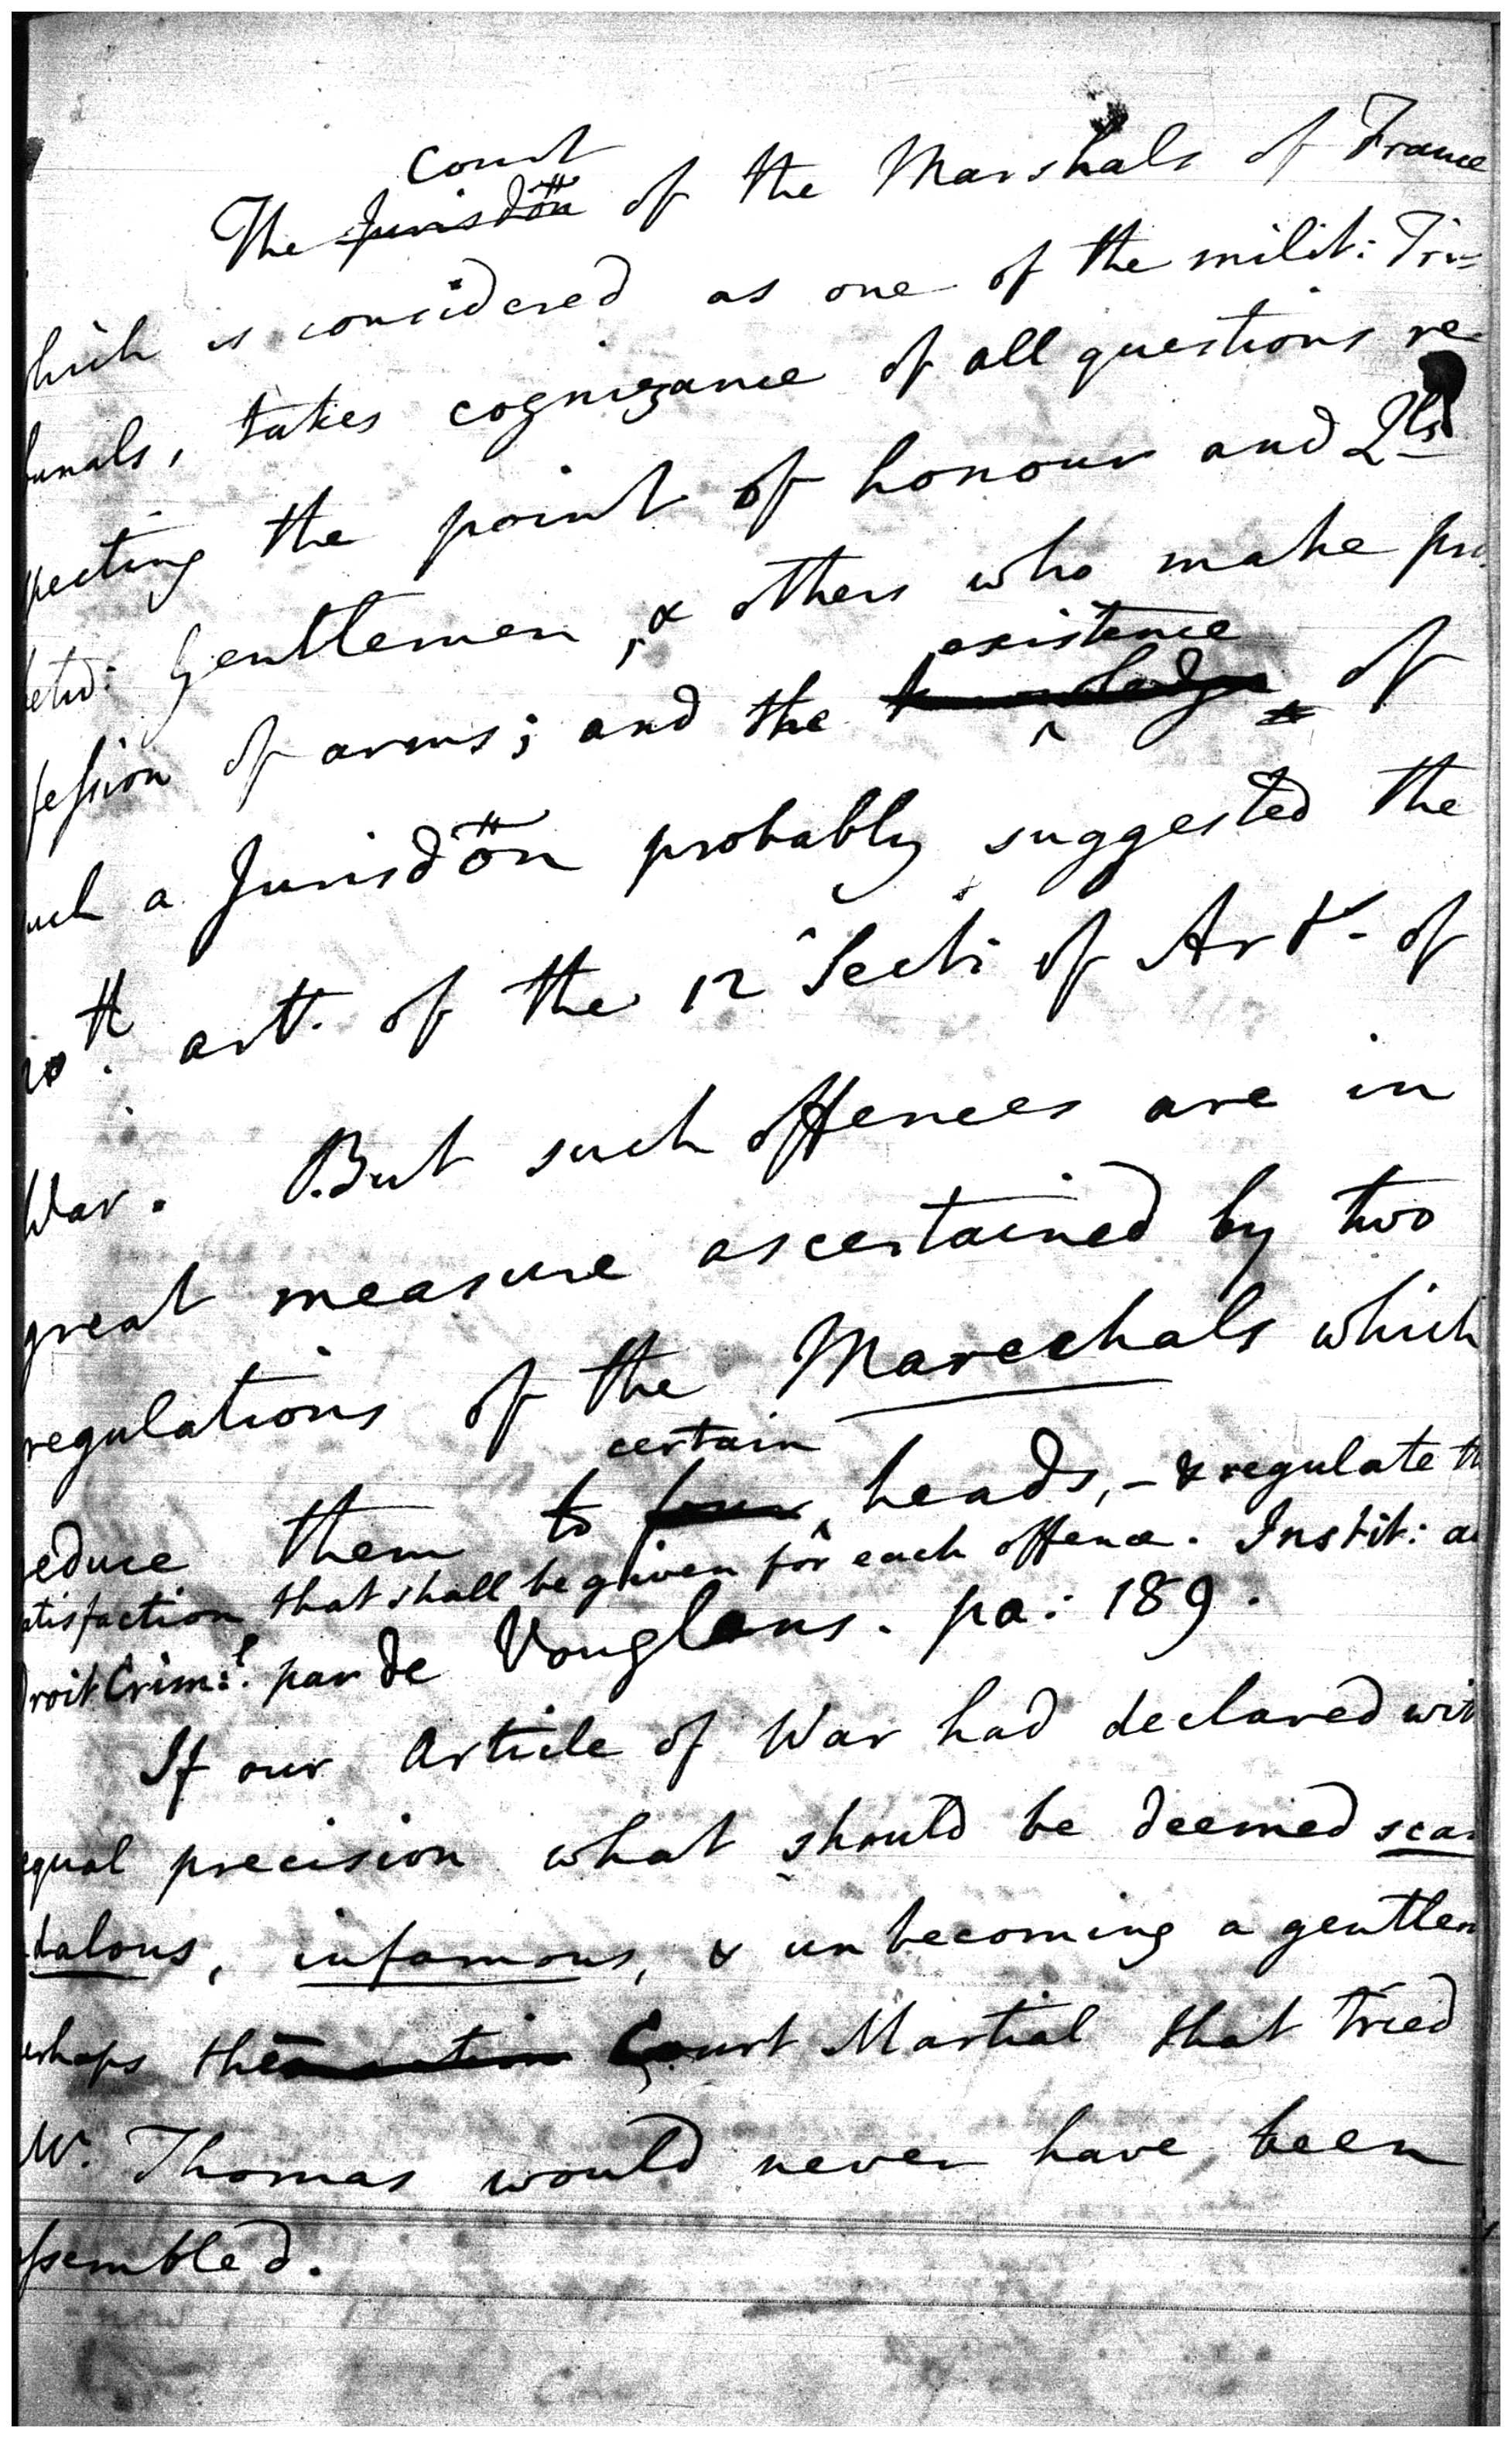 The Jurisdõn Court of the Marshals of France
hich is considered as one of the milit: Tri=
bunals, takes cognizance of all questions re=
pecting the point of honour and Qls
betw: Gentlemen, & others who make pro
fession of arms; and the knowledge existence of
uch a Jurisdõn probably suggested the
art. of the 12 Sect: of Art. of
War. But such offences are in
great measure ascertained by two
regulations of the Marechals which
reduce them to four certain heads, - & regulate th
atisfaction that shall be given for each offence. Instit: au
Droit Crim:l. par de Vouglans. pa: 189.
If our Article of War had declared wit
equal precision what should be deemed scan
dalous, infamous, & unbecoming a gentlem
erhaps the Court Martial that tried
Mr. Thomas would never have been
ssembled.